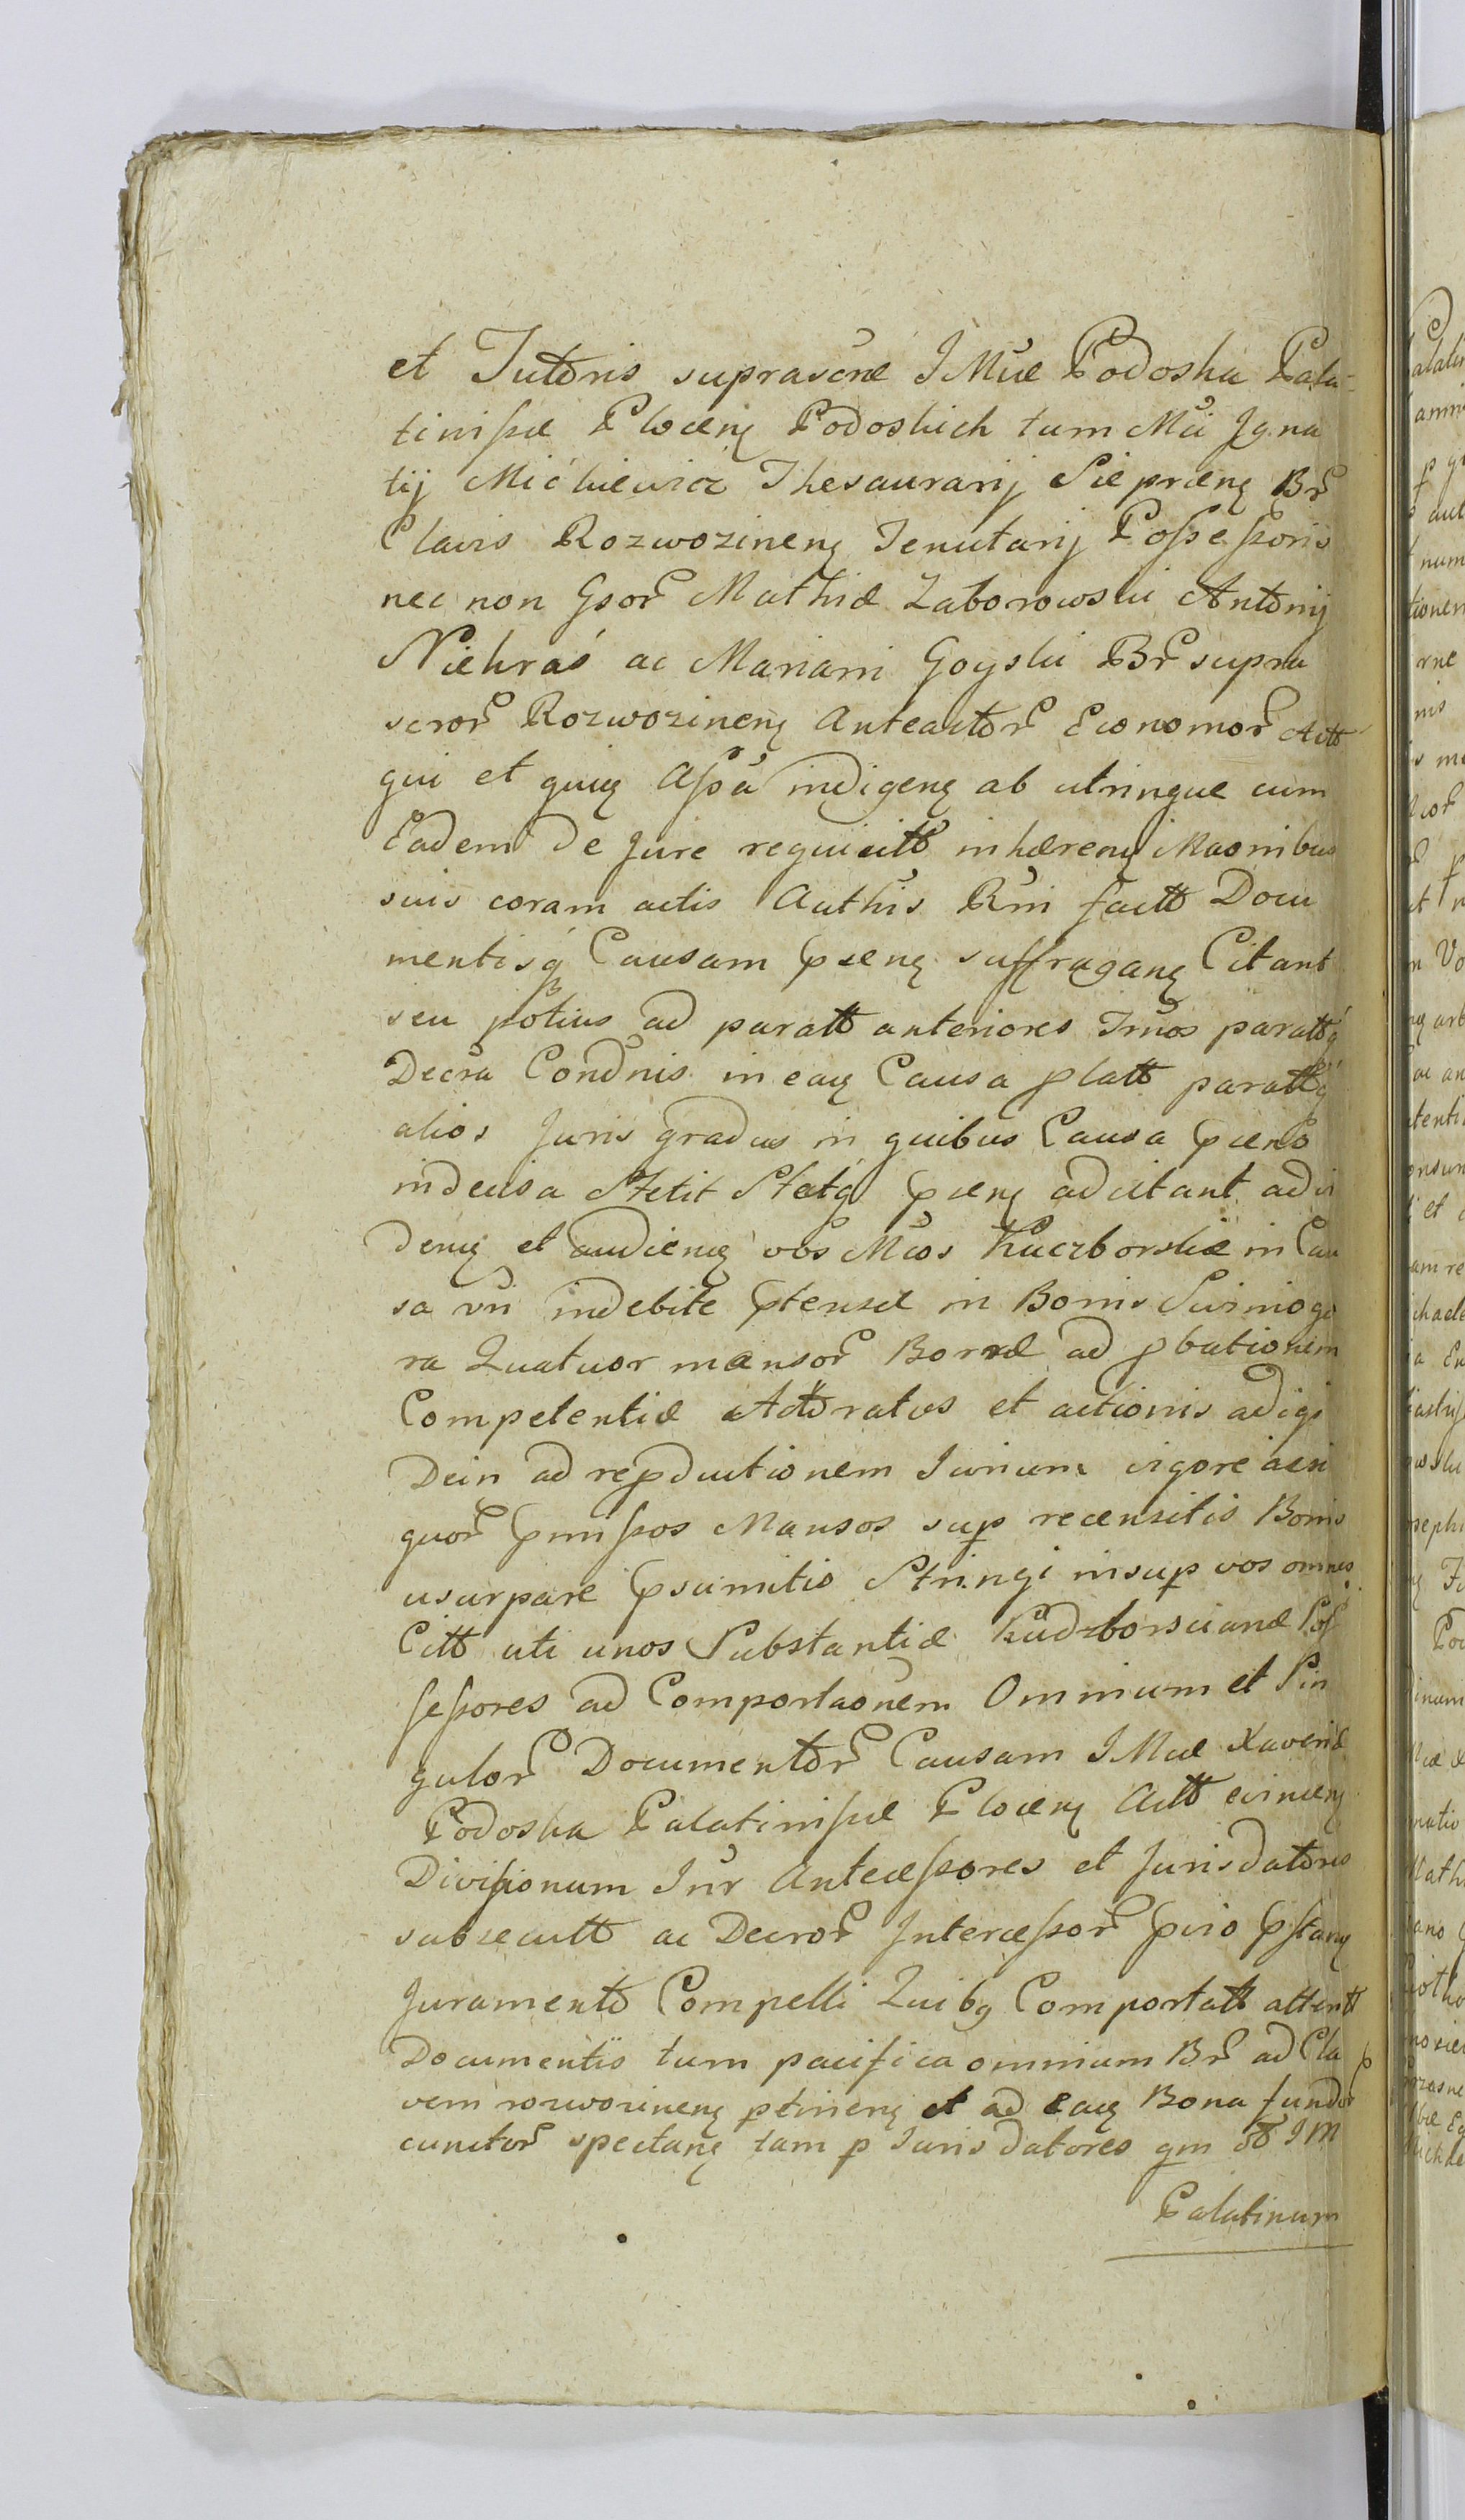 et Tutoris suprascrae IMcae Podoska Pala-
tinissae Plocens Podoskich tum Mci Igna
tij Mićkiewicz Thesaurarij Sieprcens Br
Clavis Rozwozinens Tenutarij Possessoris
nec non Gsor Mathiae Zaborowski Antonij
Niekraś ac Mariani Goyski Br supra
scror Rozwozinens Anteactor Economor Actt
qui et quus Assa indigens ab utrinque cum
Eadem de Jure requisitt inhaerens Maonibus
suis coram actis Authis Rni factt Docu
mentisq Causam psens suffragans Citant
seu potius ad paratt anteriores Trnos parattq
Decra Condnis in eaq Causa platt parattq
alios Juris gradus in quibus Causa psens
indecisa Stetit Statq psens adcitant advi
dens et audiens vos Mcos Kuczborskie in Cau
sa vri indebite ptensae in Bonis Swinogo
ra Quatuor mansor Borrae ad pbationem
Competentiae Actoratus et actionis adigi
Dein ad repductionem Jurium vigore acsi
quor pmissos Mansos sup recensitis Bonis
usurpare psumitis Stringi insup vos omnes
Citt uti unos Substantiae Kudzborscianae Pos
sessores ad Comportaonem Omnium et Sin
gulor Documentor Causam IMcae Xaveriae
Podoska Palatinissae Plocens Actt evincens
Divisionum Inr Antecessores et Jurisdatores
subsecutt ac Decror Intercessor pvio pstans
Juramento Compelli Quibq Comportatt attentt
Documentis tum pacifica omnium Br ad Cla
vem rozwozinens ptinens et ad eaq Bona fundor
cunctor spectans tam p Jurisdatores qm IM
Palatinum